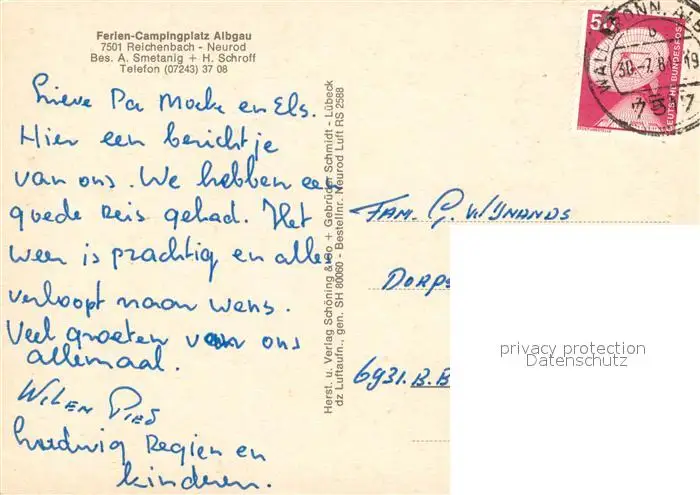 Ferien-Campingplatz Albgau
7501 Reichenbach - Neurod
Bes. A. Smetanig + H. Schroff
Telefon (07243) 37 08
Lieve Pa Moeke en Els.
Hier een berichtje
van ons. We hebben een
goede Reis gehad. Het
weer is prachtig en alles
verloopt naar wens.
Veel groeten van ons
allemaal.
Wilen Pies
Ludwig Regien en
kinderen.
Herst. u. Verlag Schöning & Co + Gebrüder Schmidt - Lübeck
dz Luftaufn., gen. SH 80060 - Bestellnr. Neurod Luft RS 2588
50
DEUTSCHE BUNDESPOST
WALDBRONN, ALB
b
30.-7.81 - 19
7517
FAM. G. WIJNANDS
DORPS
6931. B.B
privacy protection
Datenschutz